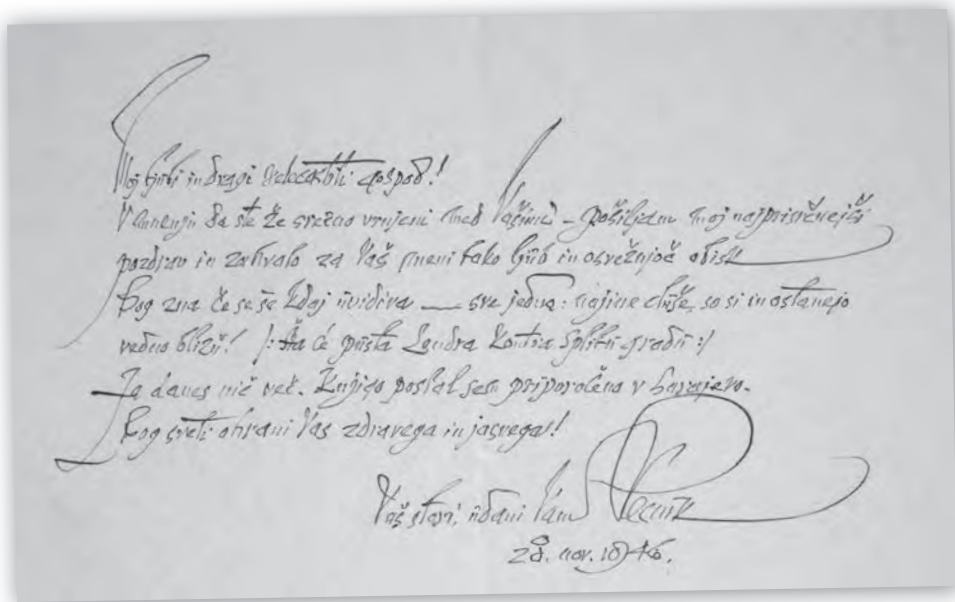 Moj ljubi in dragi velečastiti gospod!
V mnenju da ste že srečno vrnjeni med Vašimi – pošiljam moj najprisrčnejši
pozdrav in zahvalo za Vaš meni tako ljub in osvežujoč obisk
Bog zna če se še kdaj uvidiva — sve jedno: najine duše, so si in ostanejo
vedno blizu! /: Šta će pusta Londra kontra Splitu gradu :/
Za danes nič več. Knjigo poslal sem priporočeno v Sarajevo.
Bog sveti ohrani Vas zdravega in jasnega!
Vaš stari, udani Vam Plečnik
28. nov. 1946.